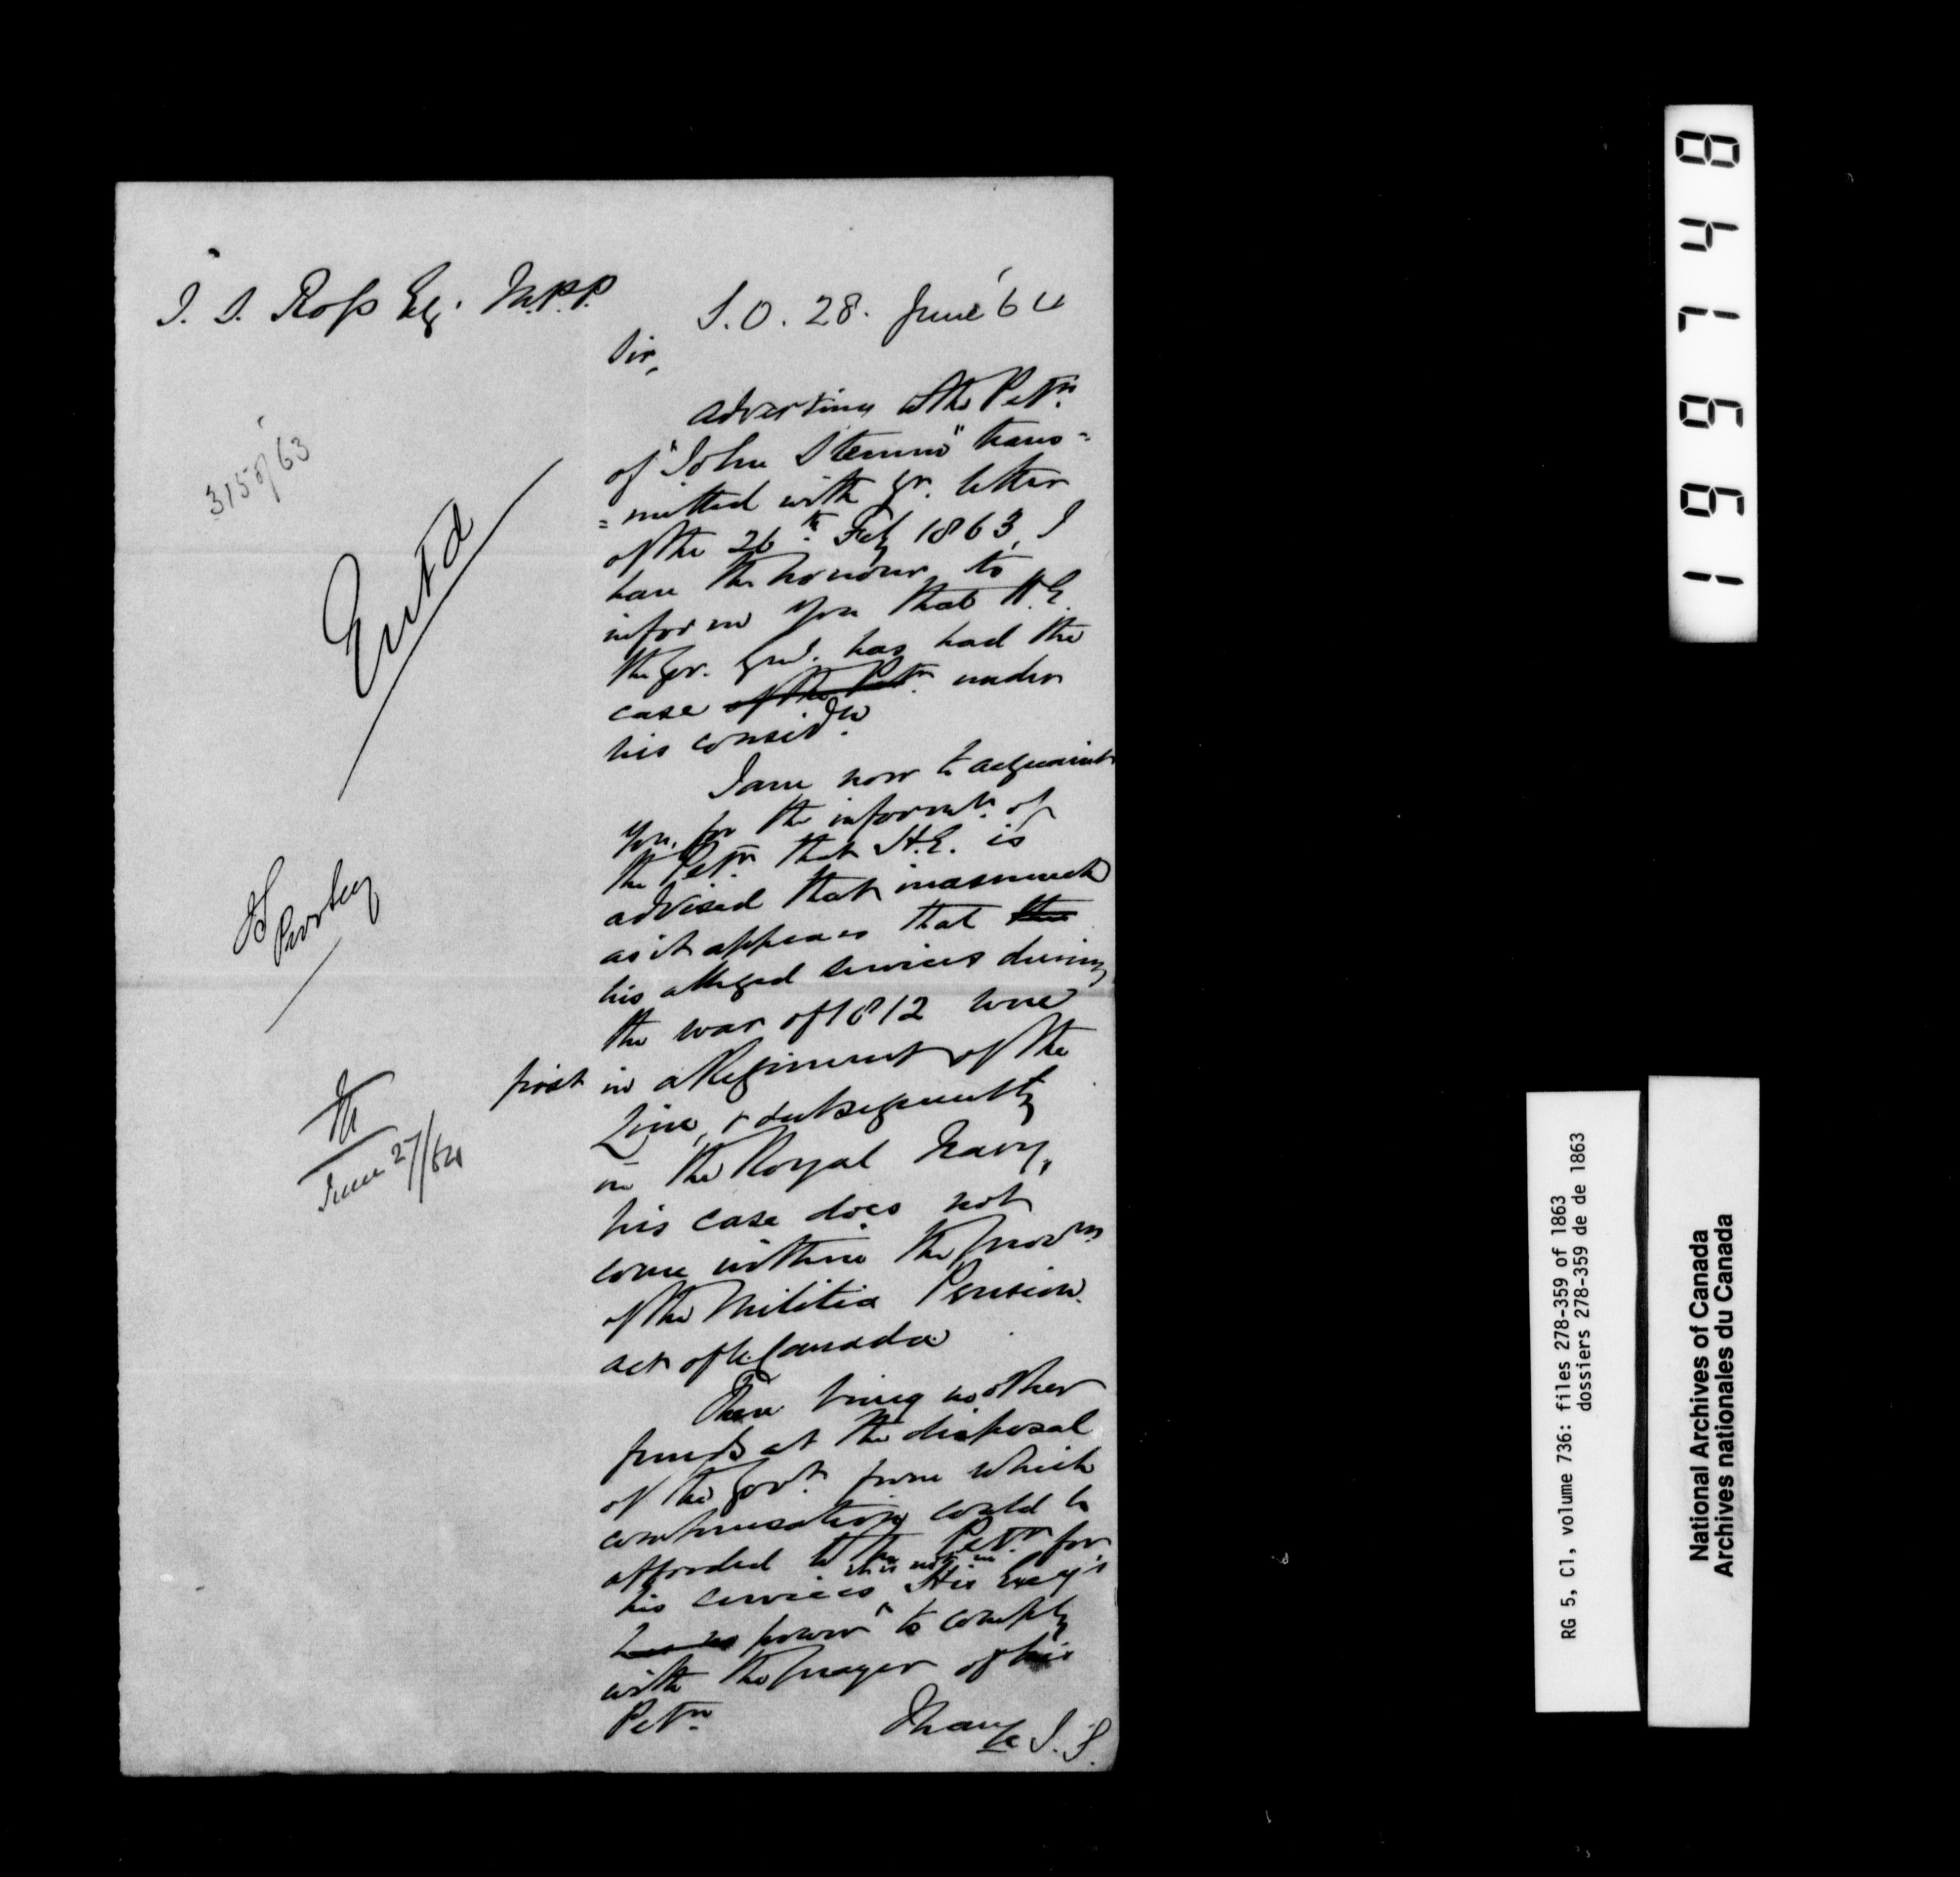 J. S. Ross Esq. M.P.P.
S.O. 28. June '64
Sir,
adverting to the Petn.
of "John Stemm" trans=
=mitted with yr. letter
of the 26th Feby 1863, I
have the honour to
inform you that H.E.
the Gov. Genl. has had the
case of the Petr. under
his considn.
I am now to acquaint
you, for the informn. of
the Petr. that H.E. is
advised that inasmuch
as it appears that the
his alleged services during
the war of 1812 were
first in a Regiment of the
Line, & subsequently
in the Royal Navy,
his case does not
come within the provns
of the Militia Pension
act of U. Canada
There being no other
funds at the disposal
of the Govt. from which
compensation could be
afforded to the Petr. for
his services it is not in His Excy's
has no power to comply
with the prayer of his
Petn.
I have &c
315 /63
Entd
June 27/64
1996748
RG 5, C1, volume 736: files 278-359 of 1863
dossiers 278-359 de de 1863
National Archives of Canada
Archives nationales du Canada